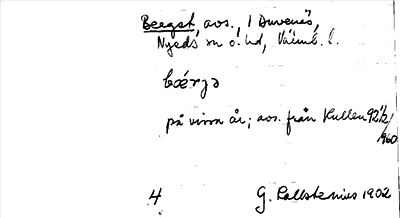 Beegst, avs., i Duvenäs,
Nyeds sn o. hd, Värml. l.
bærjə
på vissa år; avs. från Kullen 92 1/2
/960
4 G. Kallstenius 1902